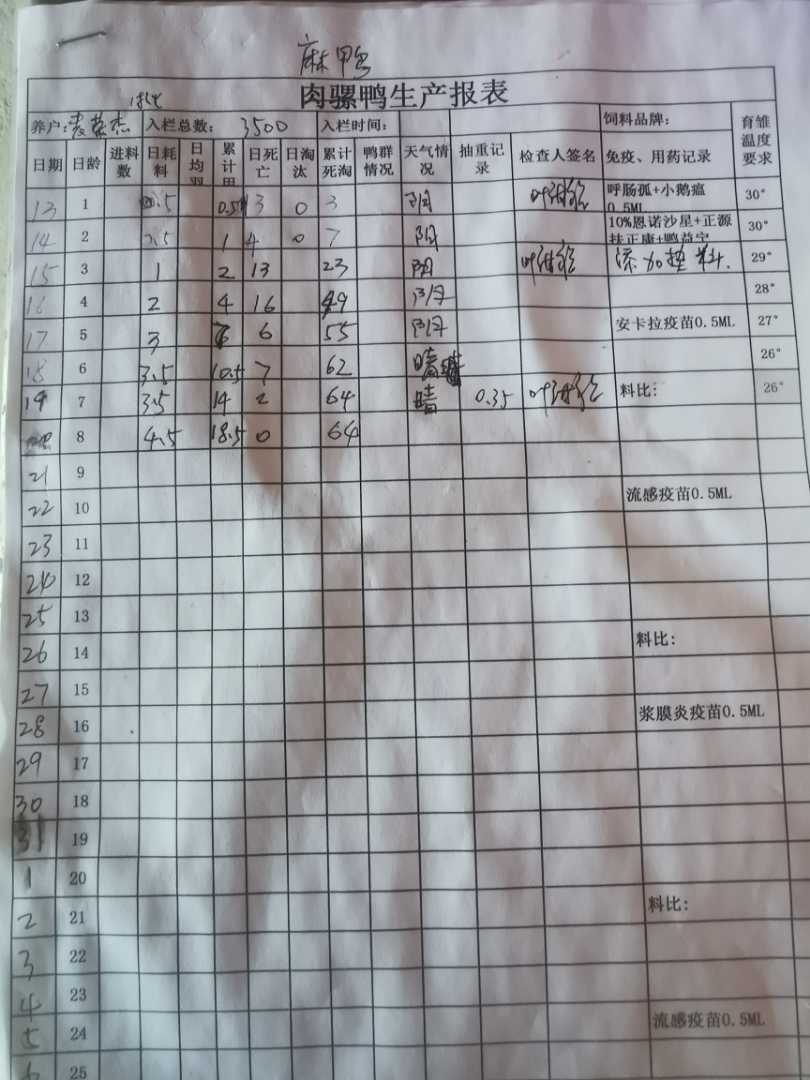 麻鸭
肉骡鸭生产报表
养户: 入栏总数: 3500 入栏时间: 饲料品牌: 育雏温度要求
日期 日龄 进料数 日耗料 日均 累计 日死亡 日淘汰 累计死淘 鸭群情况 天气情况 抽重记录 检查人签名 免疫、用药记录
13 1 0.5 0.5 3 0 3 阴 呼肠孤+小鹅瘟 0.5ML 30°
14 2 1 4 0 7 阴 10%恩诺沙星+正源扶正康+鸭益宁 30°
15 3 1 2 13 23 阴 添加 料. 29°
16 4 2 4 16 49 阴 28°
17 5 3 6 55 阴 安卡拉疫苗0.5ML 27°
18 6 3.5 10.5 7 62 晴 26°
19 7 3.5 14 2 64 晴 0.35 料比: 26°
8 4.5 18.5 0 64
21 9
22 10 流感疫苗0.5ML
23 11
24 12
25 13
26 14 料比:
27 15
28 16 浆膜炎疫苗0.5ML
29 17
30 18
31 19
1 20
2 21 料比:
3 22
4 23
5 24 流感疫苗0.5ML
25